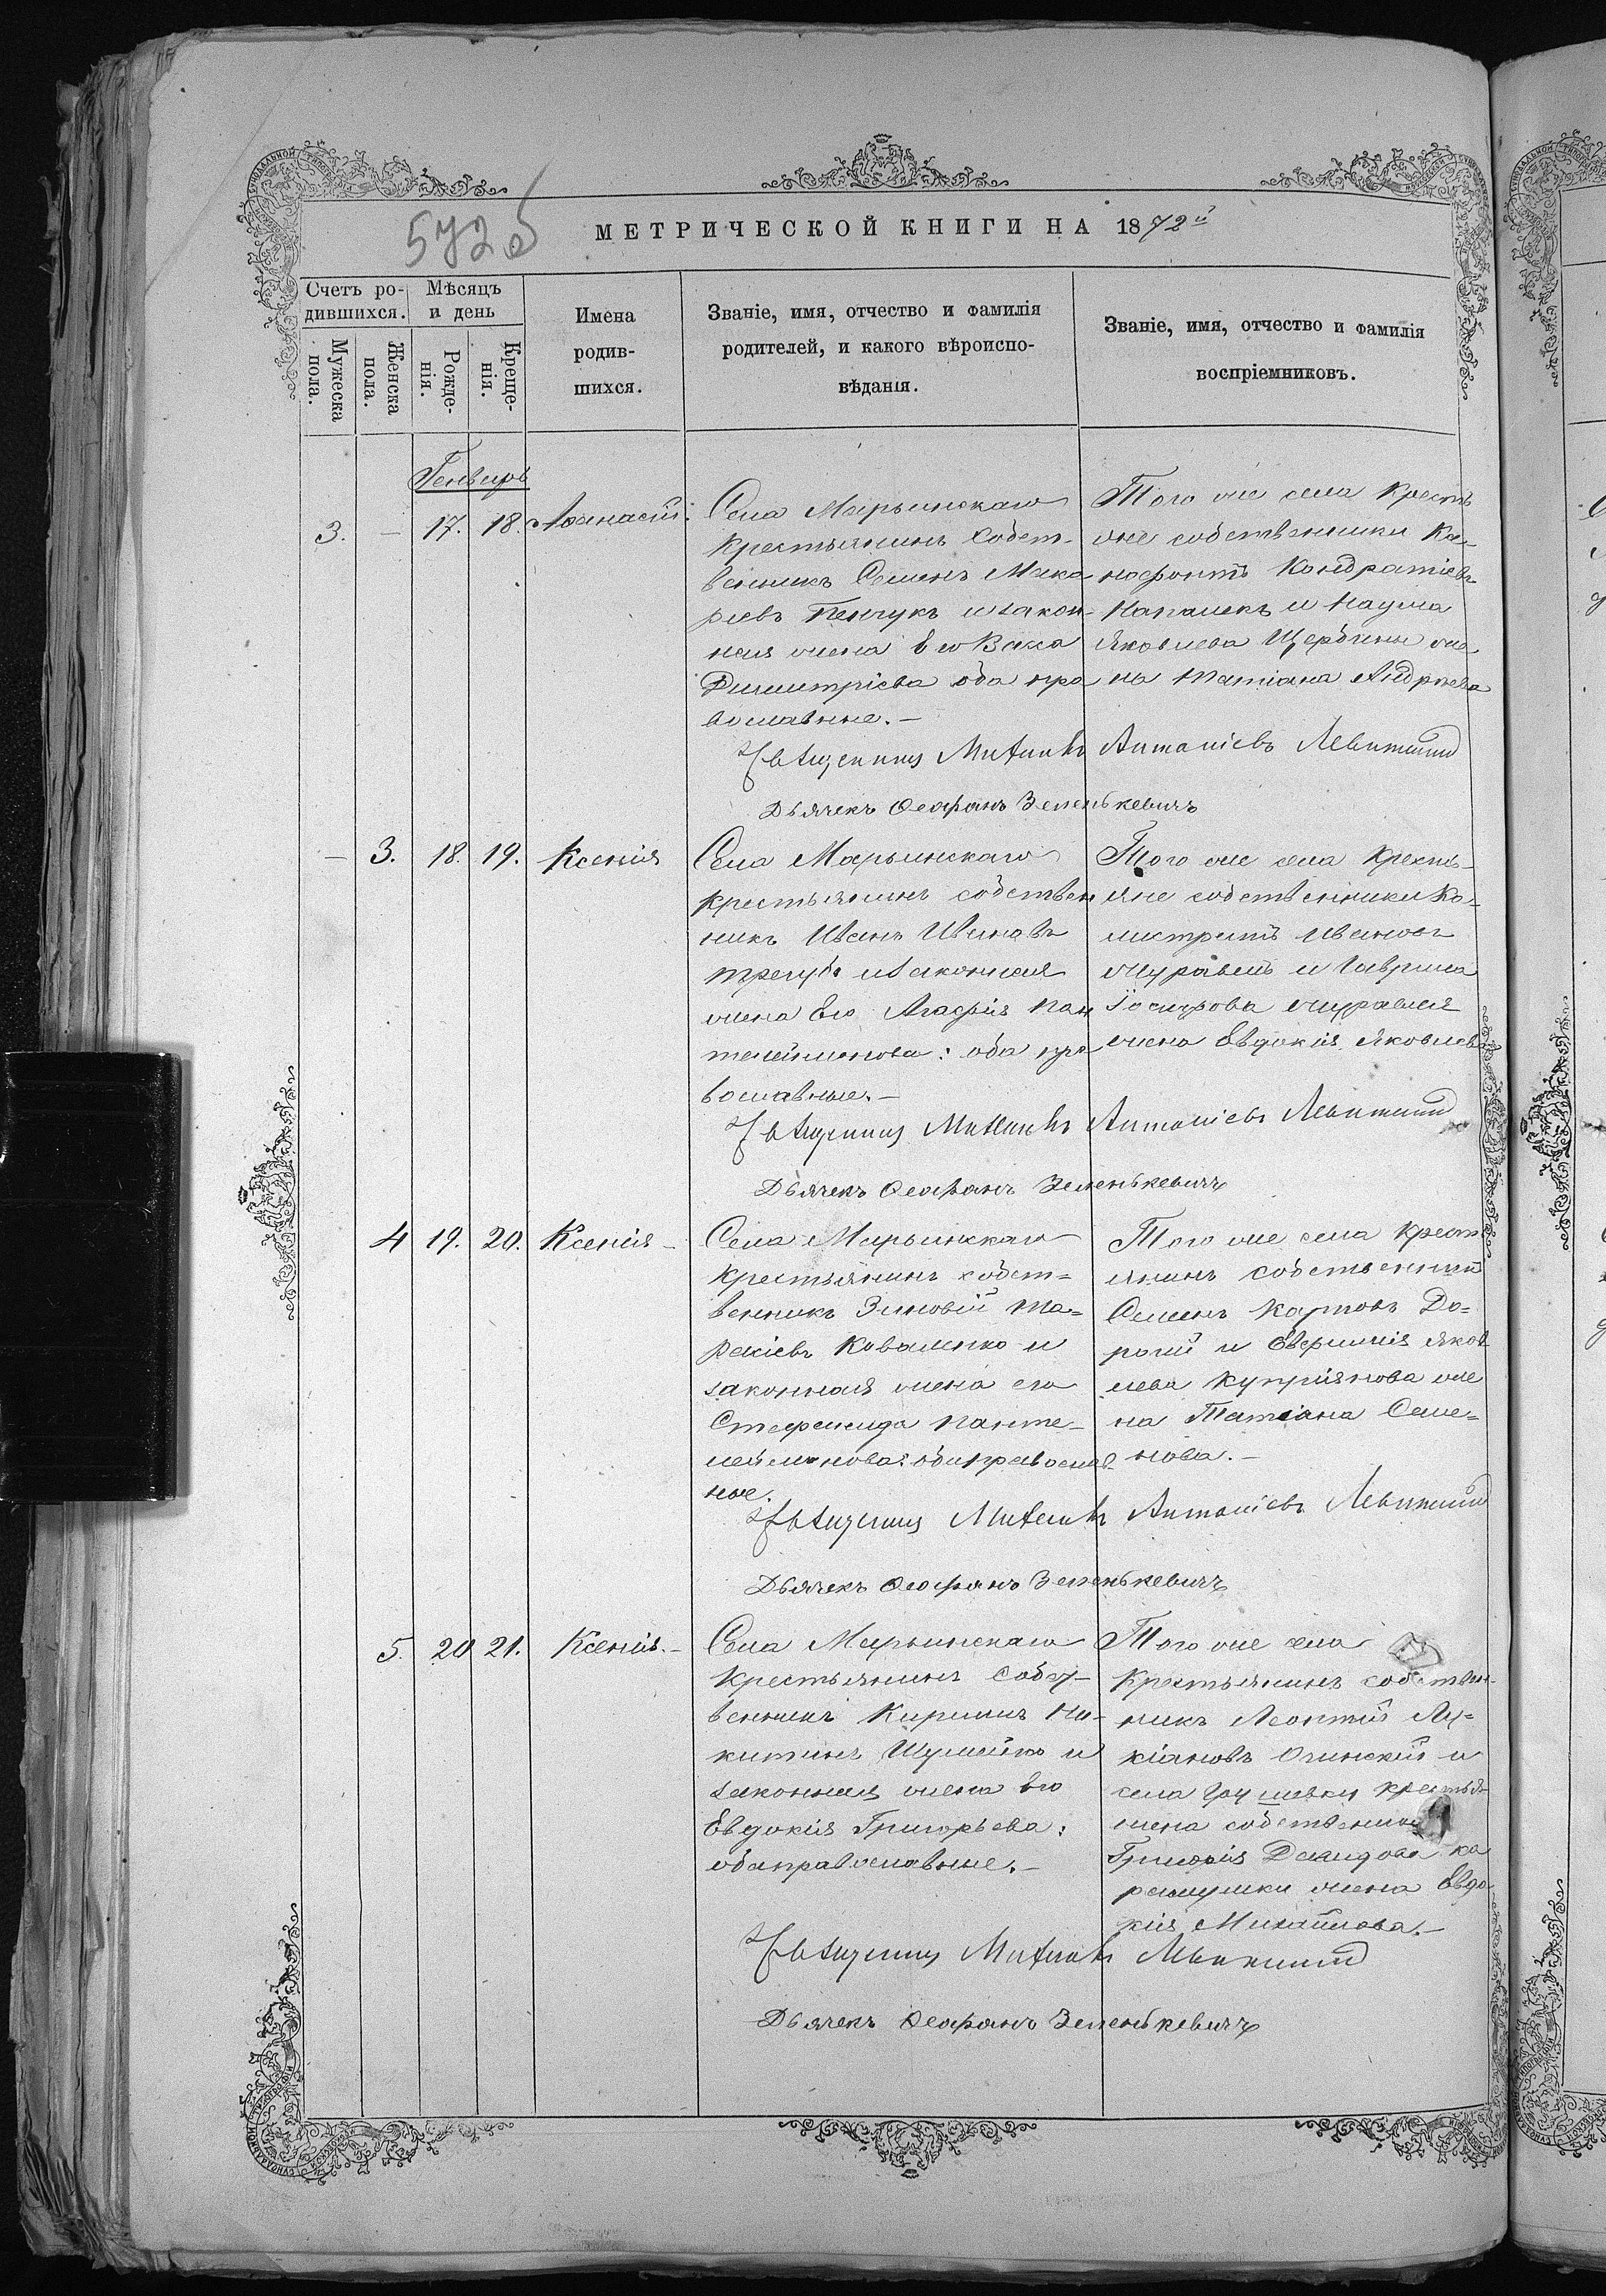 572об
МЕТРИЧЕСКОЙ КНИГИ НА 1872й
Счетъ ро-
дившихся.
Мужеска
пола.
Женска
пола.
Мѣсяцъ
и день
Рожде-
нія.
Креще-
нія.
Имена
родив-
шихся.
Званіе, имя, отчество и фамилія
родителей, и какого вѣроиспо-
вѣданія.
Званіе, имя, отчество и фамилія
воспріемниковъ.
Генварь
3. — 17. 18. Аѳанасій.
Села Марьинскаго
крестьянинъ собст-
венникъ Семенъ Мака
ріевъ Пенчукъ и закон-
ная жена Его Васса
Димитріева оба пра
вославные.—
Того же села кресть
яне собственники Ка-
нофонтъ Кондратіевъ
Напалекъ и Наума
Яковлева Щербины же
на Татіана Андреева
Антоніевъ Левитскій
Дьячекъ Ѳеофанъ Зеленькевичъ
— 3. 18. 19. Ксенія
Села Марьинскаго
крестьянинъ собствен
никъ Иванъ Ивановъ
Трегубъ и законная
жена Его Агафія Пан
телеймонова: оба пра
вославные.—
Того же села кресть-
яне собственники Ка-
листратъ Ивановъ
Журавель и Гаврила
Журавля
жена Евдокія Яковлева
Антоніевъ Левитскій
Дьячекъ Ѳеофанъ Зеленькевичъ
4 19. 20. Ксенія —
Села Марьинскаго
крестьянинъ собст=
венникъ Зиновій Та=
расіевъ Коваленко и
законная жена его
Стефанида Панте-
леймонова: оба православ
ные.
Того же села крест
янинъ собственникъ
Семенъ Карповъ До=
рогій и Яков
лева Купріянова же
на Татіана Семе=
нова.—
Антоніевъ Левитскій
Дьячекъ Ѳеофанъ Зеленькевичъ
5. 20 21. Ксенія.—
Села Марьинскаго
крестьянинъ собст-
венникъ Кириллъ Ни-
китинъ Шумейко и
законная жена Его
Евдокія Григорьева:
оба православные.—
Того же села
крестьянинъ собствен-
никъ Леонтій Лу=
кіановъ Огинскій и
села Грушевки крестья
нина собственника
Григорія Демидова Ка
рамушки жена Евдо
кія Михайлова.—
Левитскій
Дьячекъ Ѳеофанъ Зеленькевичъ